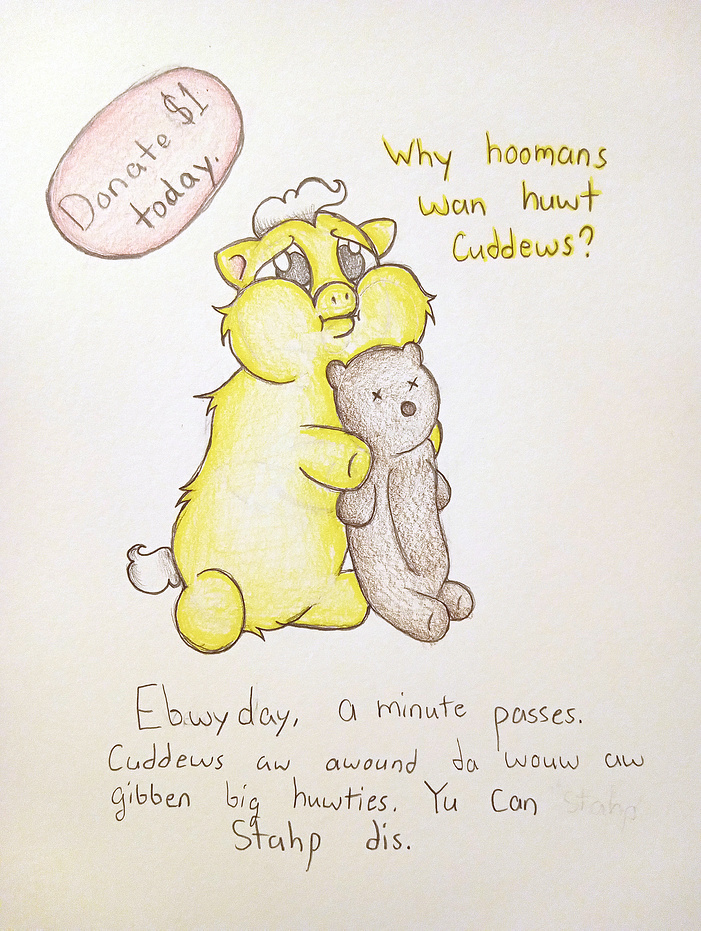 Donate $1
today.
Why hoomans
wan huwt
Cuddews?
Ebwyday, a minute passes.
Cuddews aw awound da wouw aw
gibben big huwties. Yu Can stahp
Stahp dis.